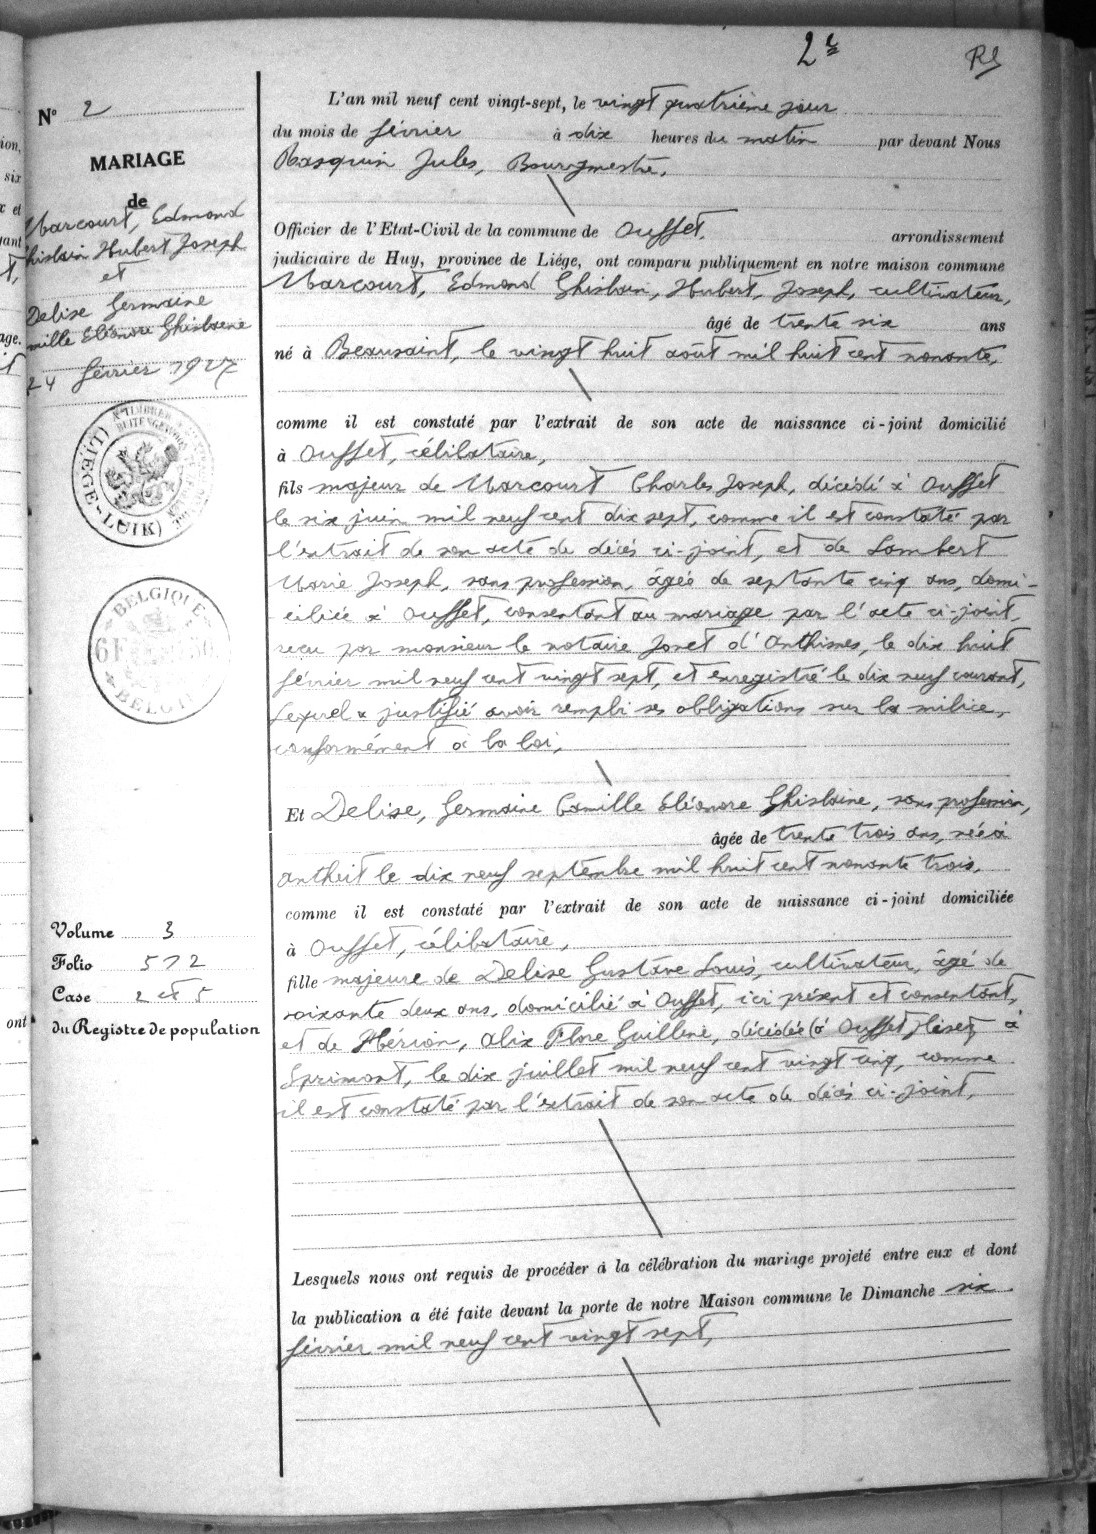 2e
RS
N° 2
MARIAGE
de
Marcourt, Edmond
Ghislain Hubert Joseph
et
Delise Germaine
Camille Eléonore Ghislaine
24 février 1927
(LIÈGE-LUIK)
BELGIQUE
6F
BELGIË
Volume 3
Folio 572
Case 2 et 5
du Registre de population
L'an mil neuf cent vingt-sept, le vingt quatrième jour
du mois de février à dix heures du matin par devant Nous
Rasquin Jules, Bourgmestre,
Officier de l'Etat-Civil de la commune de Ouffet, arrondissement
judiciaire de Huy, province de Liége, ont comparu publiquement en notre maison commune
Marcourt, Edmond Ghislain, Hubert, Joseph, cultivateur,
âgé de trente six ans
né à Beausaint, le vingt huit août mil huit cent nonante,
comme il est constaté par l'extrait de son acte de naissance ci-joint domicilié
à Ouffet, célibataire,
fils majeur de Marcourt Charles Joseph, décédé à Ouffet
le six juin mil neuf cent dix sept, comme il est constaté par
l'extrait de son acte de décès ci-joint, et de Lambert
Marie Joseph, sans profession, âgée de septante cinq ans, domi-
ciliée à Ouffet, consentant au mariage par l'acte ci-joint,
reçu par monsieur le notaire Jonet d'Anthisnes, le dix huit
février mil neuf cent vingt sept, et enregistré le dix neuf courant,
Lequel a justifié avoir rempli ses obligations sur la milice,
conformément à la loi,
Et Delise, Germaine Camille Eléonore Ghislaine, sans profession,
âgée de trente trois ans, née à
Antheit le dix neuf septembre mil huit cent nonante trois,
comme il est constaté par l'extrait de son acte de naissance ci-joint domiciliée
à Ouffet, célibataire,
fille majeure de Delise Gustave Louis, cultivateur, âgé de
soixante deux ans, domicilié à Ouffet, ici présent et consentant,
et de Hérion, Alix Flore Guillene, décédée (à Ouffet) lisez à
Sprimont, le dix juillet mil neuf cent vingt cinq, comme
il est constaté par l'extrait de son acte de décès ci-joint,
Lesquels nous ont requis de procéder à la célébration du mariage projeté entre eux et dont
la publication a été faite devant la porte de notre Maison commune le Dimanche six
février mil neuf cent vingt sept,